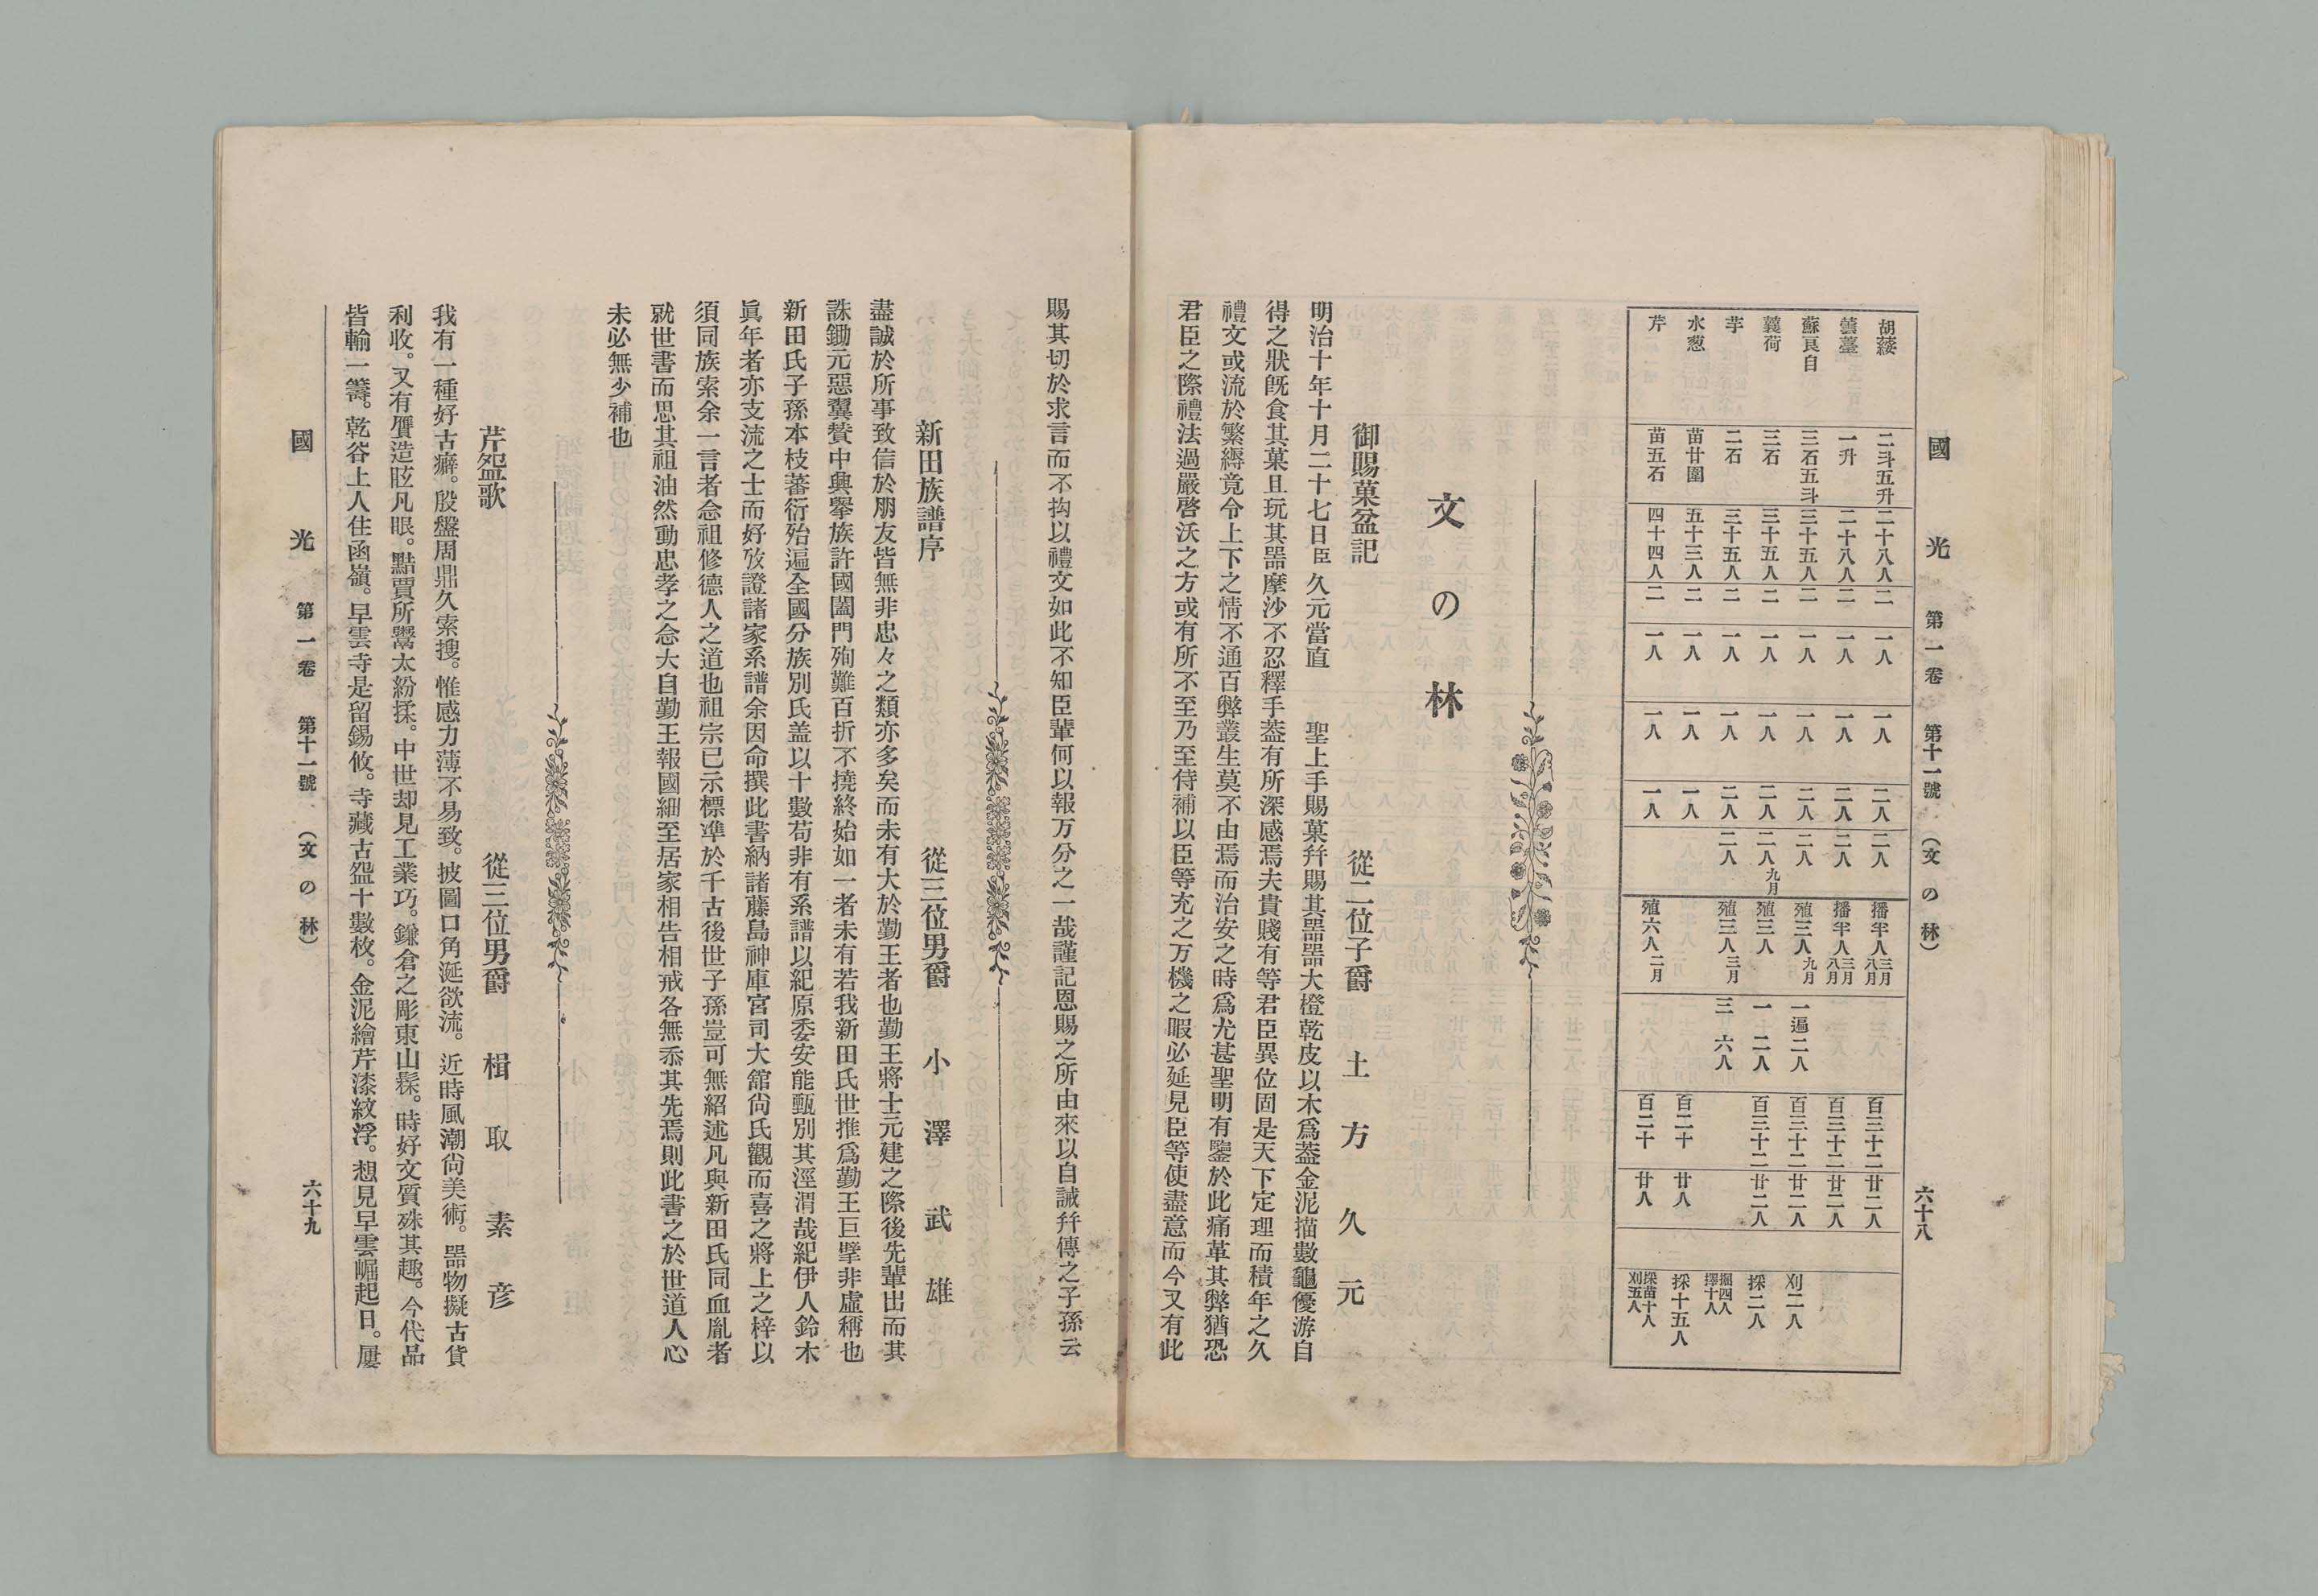 國光　第一卷　第十一號　（文の林）　六十八
胡荾　二斗五升　二十八人　二　一人　一人　二人　二人　播半人三月八月　百三十二　廿二人
蕓薹　一升　二十八人　二　一人　一人　二人　二人　播半人三月八月　百三十二　廿二人
蘇良自　三石五斗　三十五人　二　一人　一人　二人　二人　殖三人九月　一遍二人　百三十二　廿二人　刈二人
蘘荷　三石　三十五人　二　一人　一人　二人　二人九月　殖三人　一　二人　百三十二　廿二人　採二人
芋　二石　三十五人　二　一人　一人　二人　二人　殖三人三月　三　六人　掘四人擇十人
水葱　苗廿圍　五十三人　二　一人　一人　一人　百二十　廿人　採十五人
芹　苗五石　四十四人　二　一人　一人　一人　殖六人二月　百二十　廿人　採苗十人刈五人
文の林
御賜菓盆記　從二位子爵　土方久元
明治十年十月二十七日臣久元當直　聖上手賜菓幷賜其器器大橙乾皮以木爲葢金泥描數龜優游自
得之狀旣食其菓且玩其器摩沙不忍釋手葢有所深感焉夫貴賤有等君臣異位固是天下定理而積年之久
禮文或流於繁縟竟令上下之情不通百弊叢生莫不由焉而治安之時爲尤甚聖明有鑒於此痛革其弊猶恐
君臣之際禮法過嚴啓沃之方或有所不至乃至侍補以臣等充之万機之暇必延見臣等使盡意而今又有此
賜其切於求言而不拘以禮文如此不知臣輩何以報万分之一哉謹記恩賜之所由來以自誡幷傳之子孫云
新田族譜序　從三位男爵　小澤武雄
盡誠於所事致信於朋友皆無非忠々之類亦多矣而未有大於勤王者也勤王將士元建之際後先輩出而其
誅鋤元惡翼贊中興擧族許國闔門殉難百折不撓終始如一者未有若我新田氏世推爲勤王巨擘非虛稱也
新田氏子孫本枝蕃衍殆遍全國分族別氏盖以十數苟非有系譜以紀原委安能甄別其涇渭哉紀伊人鈴木
眞年者亦支流之士而好攷證諸家系譜余因命撰此書納諸藤島神庫宮司大舘尙氏觀而喜之將上之梓以
須同族索余一言者念祖修德人之道也祖宗已示標凖於千古後世子孫豈可無紹述凡與新田氏同血胤者
就世書而思其祖油然動忠孝之念大自勤王報國細至居家相告相戒各無忝其先焉則此書之於世道人心
未必無少補也
芹盌歌　從三位男爵　楫取素彦
我有一種好古癖。殷盤周鼎久索搜。惟感力薄不易致。披圖口角涎欲流。近時風潮尙美術。器物擬古貨
利收。又有贋造眩凡眼。點賈所鬻太紛揉。中世却見工業巧。鎌倉之彫東山髹。時好文質殊其趣。今代品
皆輸一籌。乾谷上人住函嶺。早雲寺是留錫攸。寺藏古盌十數枚。金泥繪芹漆紋浮。想見早雲崛起日。屢
國光　第一卷　第十一號　（文の林）　六十九